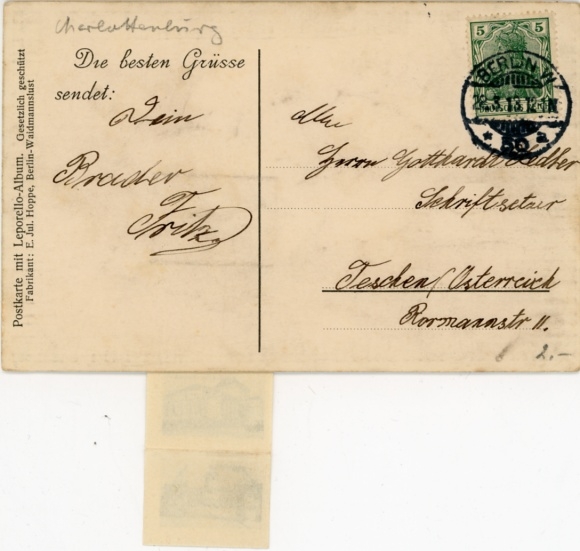 Charlottenburg
Die besten Grüsse
sendet:
Dein
Bruder
Fritz
Postkarte mit Leporello-Album. Gesetzlich geschützt
Fabrikant: E. Jul. Hoppe, Berlin-Waldmannslust
5 5
BERLIN W
50
a
An
Herrn Gotthardt
Schriftsetzer
Teschen/Österreich
Rormannstr 11.
2.-